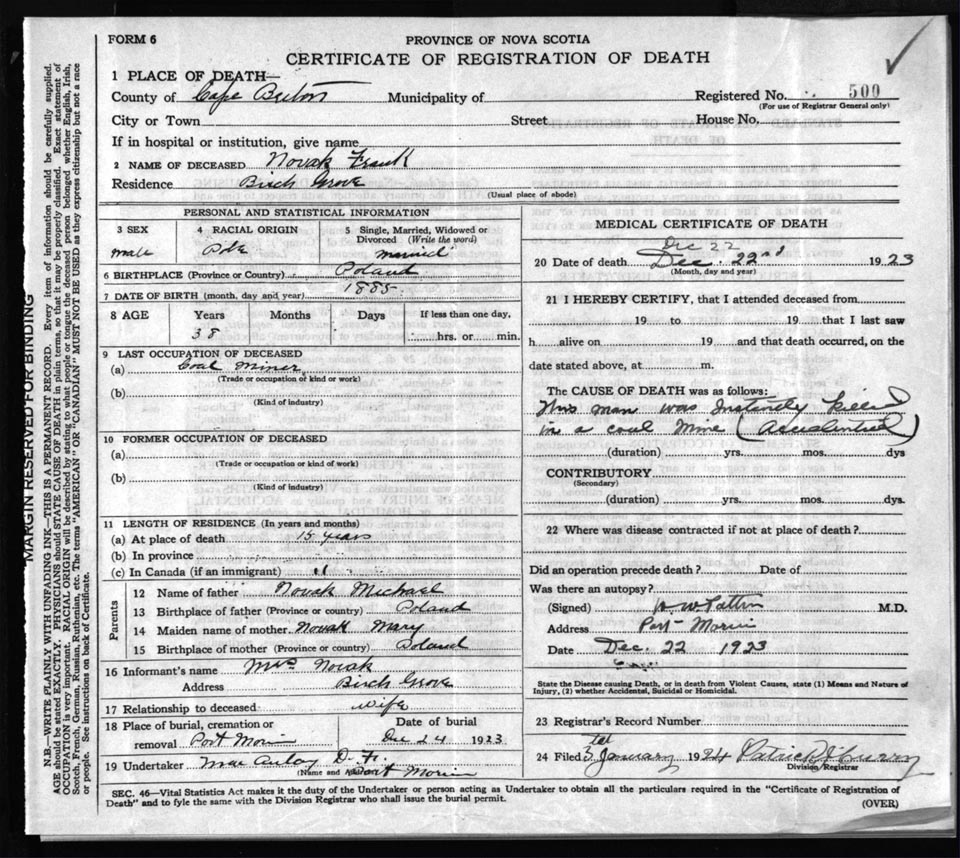 FORM 6
PROVINCE OF NOVA SCOTIA
CERTIFICATE OF REGISTRATION OF DEATH
1 PLACE OF DEATH—
County of Cape Breton Municipality of Registered No. 500
(For use of Registrar General only)
City or Town Street House No.
If in hospital or institution, give name
2 NAME OF DECEASED Novak Frank
Residence Birch Grove
(Usual place of abode)
PERSONAL AND STATISTICAL INFORMATION
3 SEX 4 RACIAL ORIGIN 5 Single, Married, Widowed or Divorced (Write the word)
male Pole married
6 BIRTHPLACE (Province or Country) Poland
7 DATE OF BIRTH (month, day and year) 1885
8 AGE Years Months Days If less than one day,
38 hrs. or min.
9 LAST OCCUPATION OF DECEASED
(a) Coal Miner
(Trade or occupation or kind or work)
(b)
(Kind of industry)
10 FORMER OCCUPATION OF DECEASED
(a)
(Trade or occupation or kind of work)
(b)
(Kind of industry)
11 LENGTH OF RESIDENCE (In years and months)
(a) At place of death 15 years
(b) In province
(c) In Canada (if an immigrant) "
Parents
12 Name of father Novak Michael
13 Birthplace of father (Province or country) Poland
14 Maiden name of mother Novak Mary
15 Birthplace of mother (Province or country) Poland
16 Informant's name Mrs Novak
Address Birch Grove
17 Relationship to deceased wife
18 Place of burial, cremation or Date of burial
removal Port Morien Dec 24 1923
19 Undertaker
(Name and Address) Port Morien
MEDICAL CERTIFICATE OF DEATH
Dec 22
20 Date of death Dec. 22nd 1923
(Month, day and year)
21 I HEREBY CERTIFY, that I attended deceased from
19 to 19 that I last saw
h alive on 19 and that death occurred, on the
date stated above, at m.
The CAUSE OF DEATH was as follows:
This man was Instantly killed
in a coal mine (Accidental)
(duration) yrs. mos. dys
CONTRIBUTORY
(Secondary)
(duration) yrs. mos. dys.
22 Where was disease contracted if not at place of death?
Did an operation precede death? Date of
Was there an autopsy?
(Signed) M.D.
Address Port Morien
Date Dec. 22 1923
State the Disease causing Death, or in death from Violent Causes, state (1) Means and Nature of
Injury, (2) whether Accidental, Suicidal or Homicidal.
23 Registrar's Record Number
24 Filed January 1924
Division Registrar
SEC. 46—Vital Statistics Act makes it the duty of the Undertaker or person acting as Undertaker to obtain all the particulars required in the "Certificate of Registration of
Death" and to fyle the same with the Division Registrar who shall issue the burial permit.
(OVER)
MARGIN RESERVED FOR BINDING
N.B.—WRITE PLAINLY, WITH UNFADING INK—THIS IS A PERMANENT RECORD. Every item of information should be carefully supplied.
AGE should be stated EXACTLY. PHYSICIANS should STATE CAUSE OF DEATH in plain terms, so that it may be properly classified. Exact statement of
OCCUPATION is very important. RACIAL ORIGIN will be described by stating to what people or tongue the deceased person belonged whether English, Irish,
Scotch, French, German, Russian, Ruthenian, etc. The terms "AMERICAN" OR "CANADIAN" MUST NOT BE USED as they express citizenship but not a race
or people. See instructions on back of Certificate.